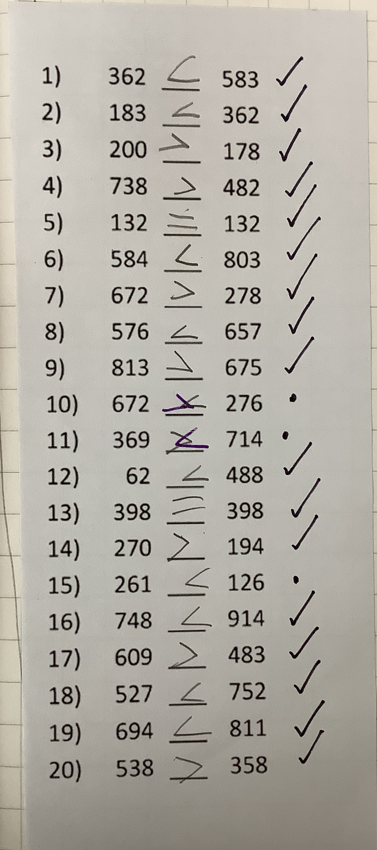 1) 362 < 583 ✓
2) 183 < 362 ✓
3) 200 > 178 ✓
4) 738 > 482 ✓
5) 132 = 132 ✓
6) 584 < 803 ✓
7) 672 > 278 ✓
8) 576 < 657 ✓
9) 813 > 675 ✓
10) 672 > 276 •
11) 369 < 714 •
12) 62 < 488 ✓
13) 398 = 398 ✓
14) 270 > 194 ✓
15) 261 < 126 •
16) 748 < 914 ✓
17) 609 > 483 ✓
18) 527 < 752 ✓
19) 694 < 811 ✓
20) 538 > 358 ✓